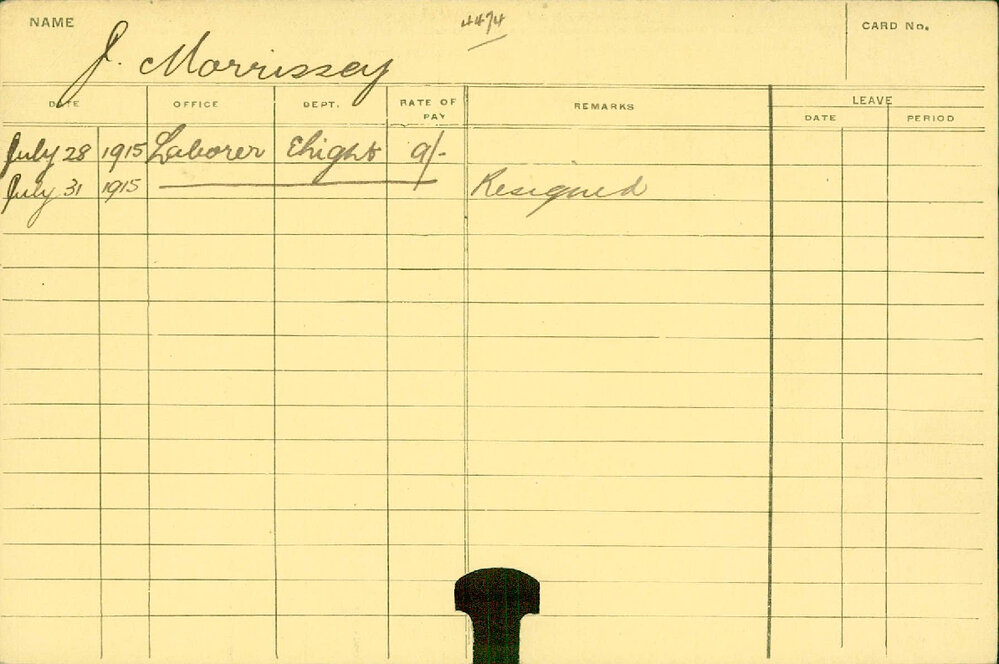 NAME
4474
CARD No.
J. Morrissey
DATE OFFICE DEPT. RATE OF PAY REMARKS LEAVE
DATE PERIOD
July 28 1915 Laborer Elight 9/-
July 31 1915 Resigned